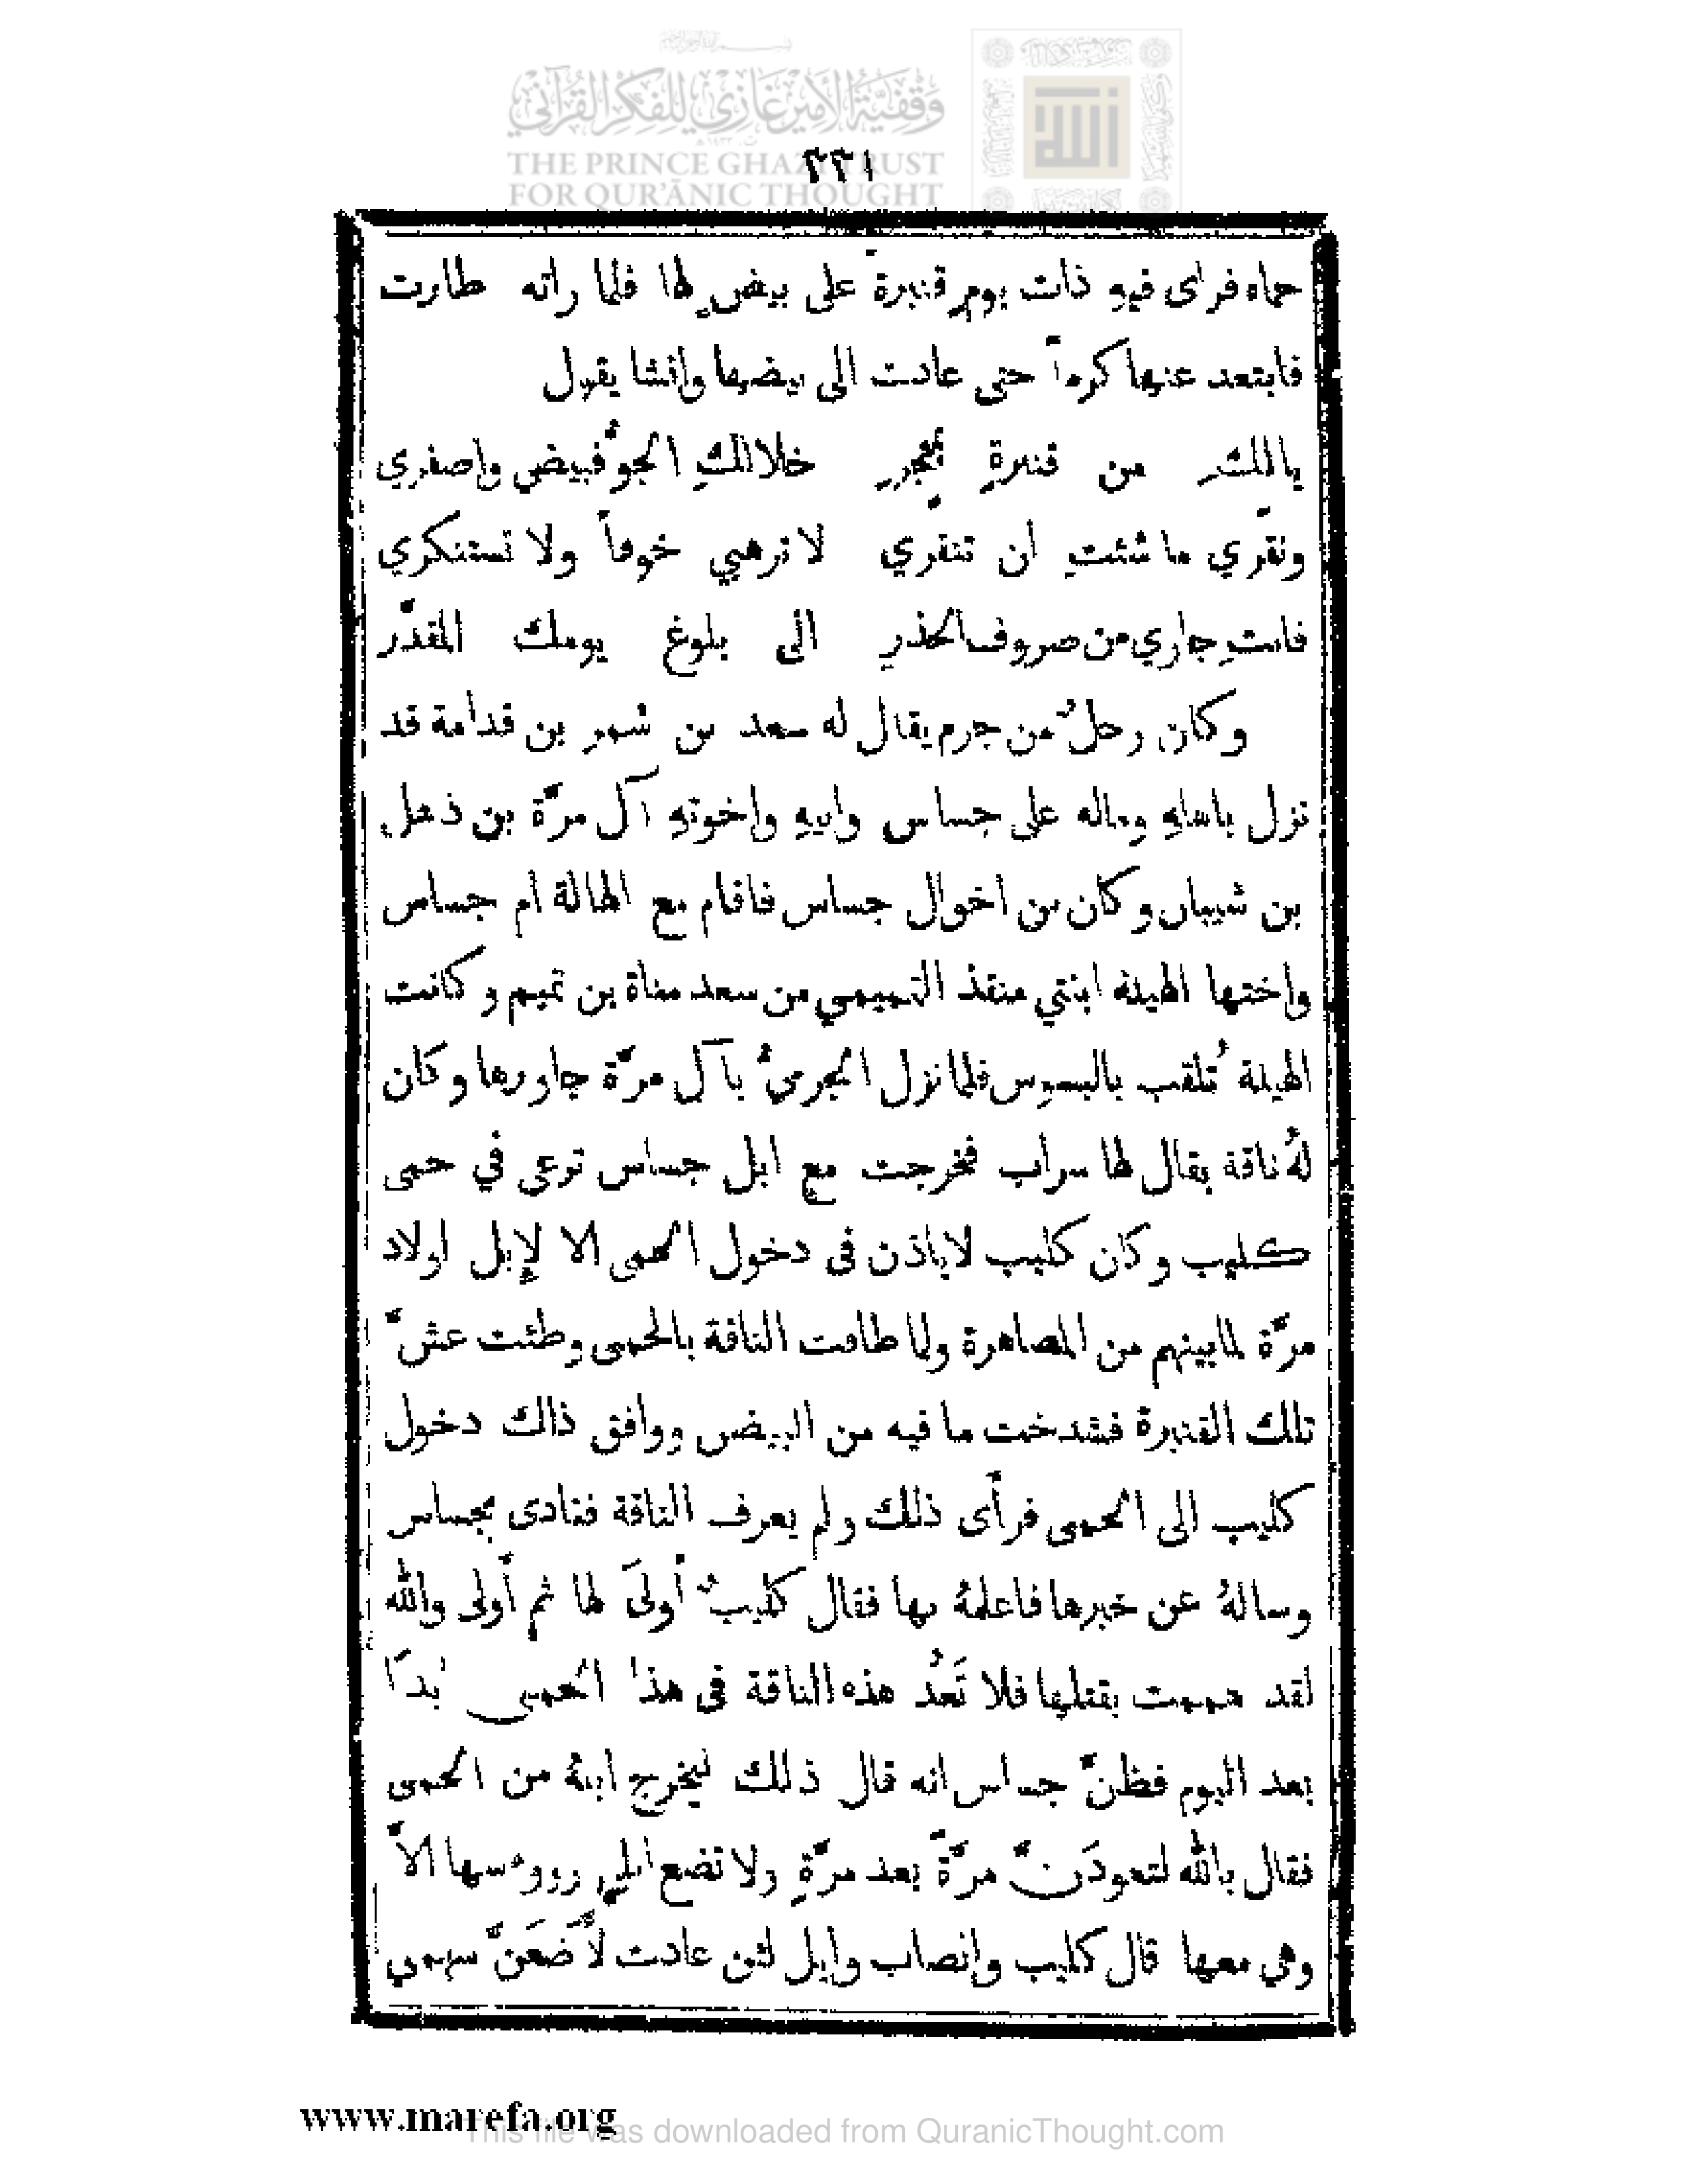 وقفية الأمير غازي للفكر القرآني
THE PRINCE GHAZI TRUST
FOR QUR'ĀNIC THOUGHT
٢٣١
حماه فراى فيهِ ذات يومٍ قنبرةً على بيضٍ لها فلما راته طارت
فابتعد عنها كرماً حتى عادت الى بيضها وانشا يقول
يالك من قنبرةٍ بمَحجرِ خلا لكِ الجوُّ فبيضي واصفري
ونقّري ما شئتِ ان تنقّري لا ترهبي خوفاً ولا تستنكري
فانتِ جاري من صروف الحذرِ الى بلوغ يومك المقدّر
وكان رجلٌ من جرم يقال له سعد بن شمر بن قدامة قد
نزل باهلهِ وماله على جساس وابيهِ واخوتهِ آل مرّة بن ذهل
بن شيبان وكان من اخوال جساس فاقام مع الهالة ام جساس
واختها الهيلة ابنتي منقذ التميمي من سعد مناة بن تميم وكانت
الهيلة تُلقب بالبسوس فلما نزل الجرميُّ بآل مرّة جاورها وكان
لهُ ناقة يقال لها سراب فخرجت مع ابل جساس ترعى في حمى
كليب وكان كليب لاياذن في دخول الحمى الا لإبل اولاد
مرّة لما بينهم من المصاهرة ولما طافت الناقة بالحمى وطئت عشّ
تلك القنبرة فشدخت ما فيه من البيض ووافق ذالك دخول
كليب الى الحمى فرأَى ذلك ولم يعرف الناقة فنادى بجساس
وسالهُ عن خبرها فاعلمهُ بها فقال كليبٌ أَولىَ لها ثم أَولى والله
لقد هممت بقتلها فلا تَعُد هذه الناقة في هذا الحمى ابدًا
بعد اليوم فظنّ جساس انه قال ذلك ليخرج ابلهُ من الحمى
فقال بالله لتعودَنّ مرّةً بعد مرّةٍ ولا تضع ابلي روؤسها الاّ
وهي معها قال كليب وانصاب وايل لئن عادت لأَضَعَنّ سهمي
www.marefa.org
This file was downloaded from QuranicThought.com